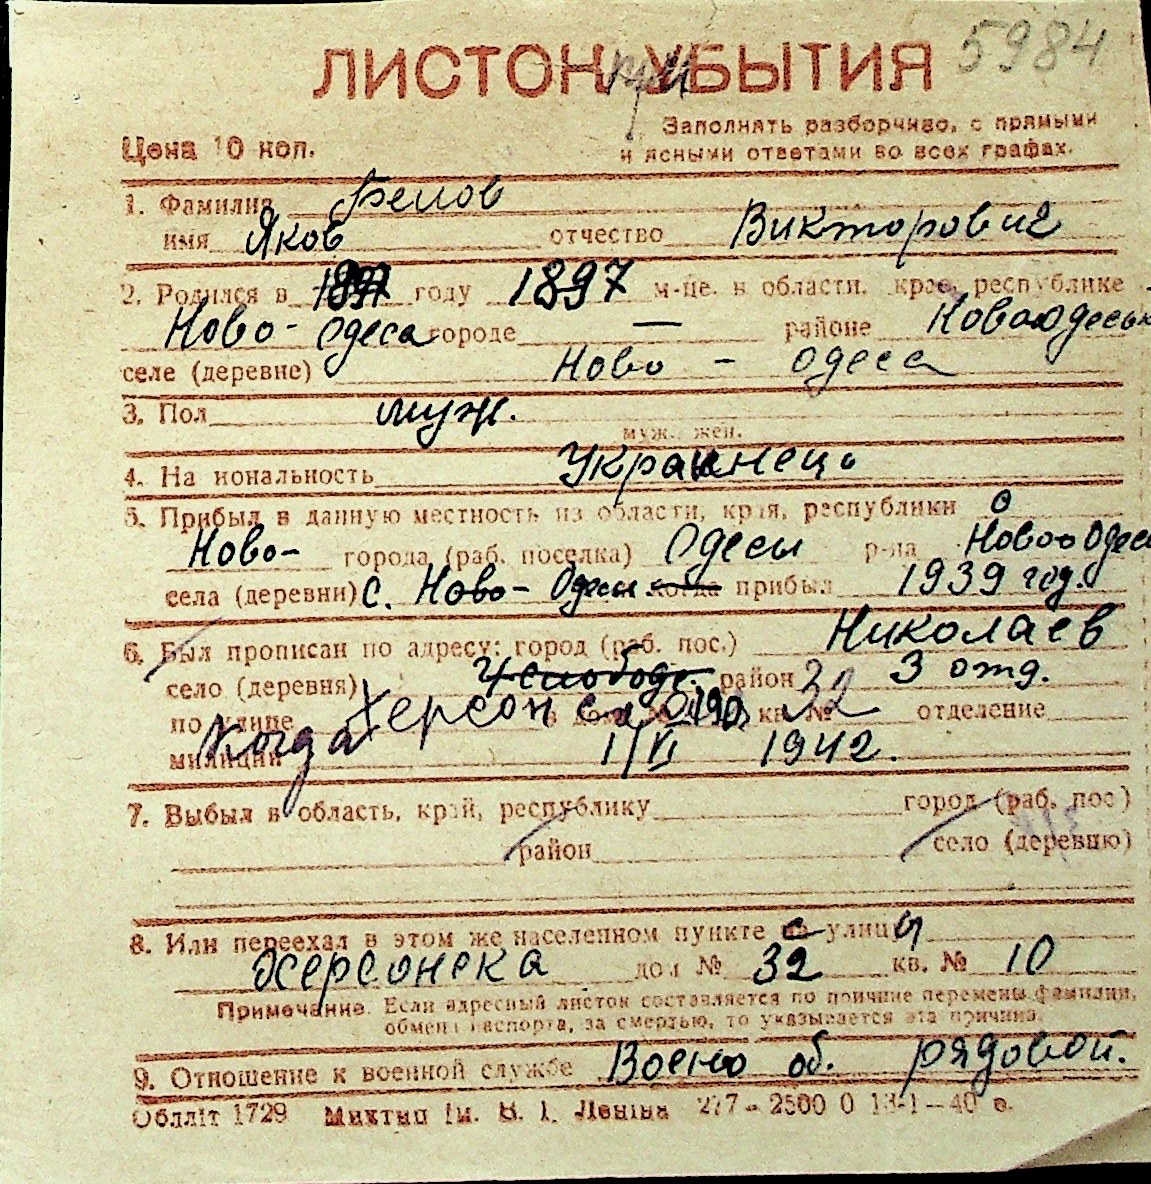 ЛИСТОК УБЫТИЯ 5984
Заполнять разборчиво, с прямыми
Цена 10 коп. и ясными ответами во всех графах.
1. Фамилия Белов
имя Яков отчество Викторович
2. Родился в 1897 году 1897 м-це. в области, крае, республике
Ново-Одеса городе — районе Новоодеськ
селе (деревне) Ново - Одеса
3. Пол муж.
муж. жен.
4. На иональность Украинець
5. Прибыл в данную местность из области, края, республики О
Ново- города (раб. поселка) Одесы р-на Новоо Одес
села (деревни) с. Ново-Одесы когда прибыл 1939 год.
6. Был прописан по адресу: город (раб. пос.) Николаев
село (деревня) район 32 3 отд.
по улице Херсонска кв. № отделение
милиции Когда 1/VI 1942.
7. Выбыл в область, край, республику город (раб. пос)
район село (деревню)
8. Или переехал в этом же населенном пункте с улицы
Херсонска дом № 32 кв. № 10
Примечание. Если адресный листок составляется по причине перемены фамилии,
обмена паспорта, за смертью, то указывается эта причина.
9. Отношение к военной службе Военно об. рядовой.
Обдліт 1729 Миктип Ім. В. І. Леніна 277-2500 0 13-1-40 е.